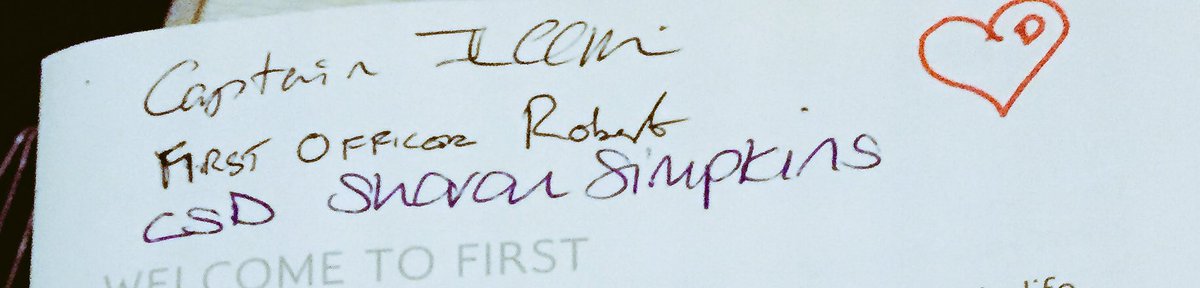 Captain
FIRST OFFICER Robert
CSD Sharon Simpkins
WELCOME TO FIRST
life